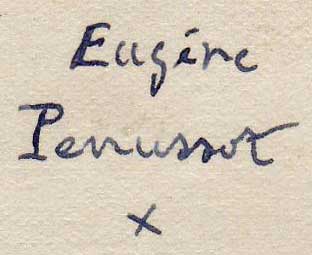 Eugène
Perrussot
x